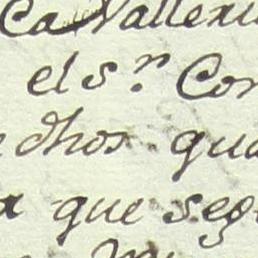 Ca Vallexi
el s.r Cor
dhos qua
que seg